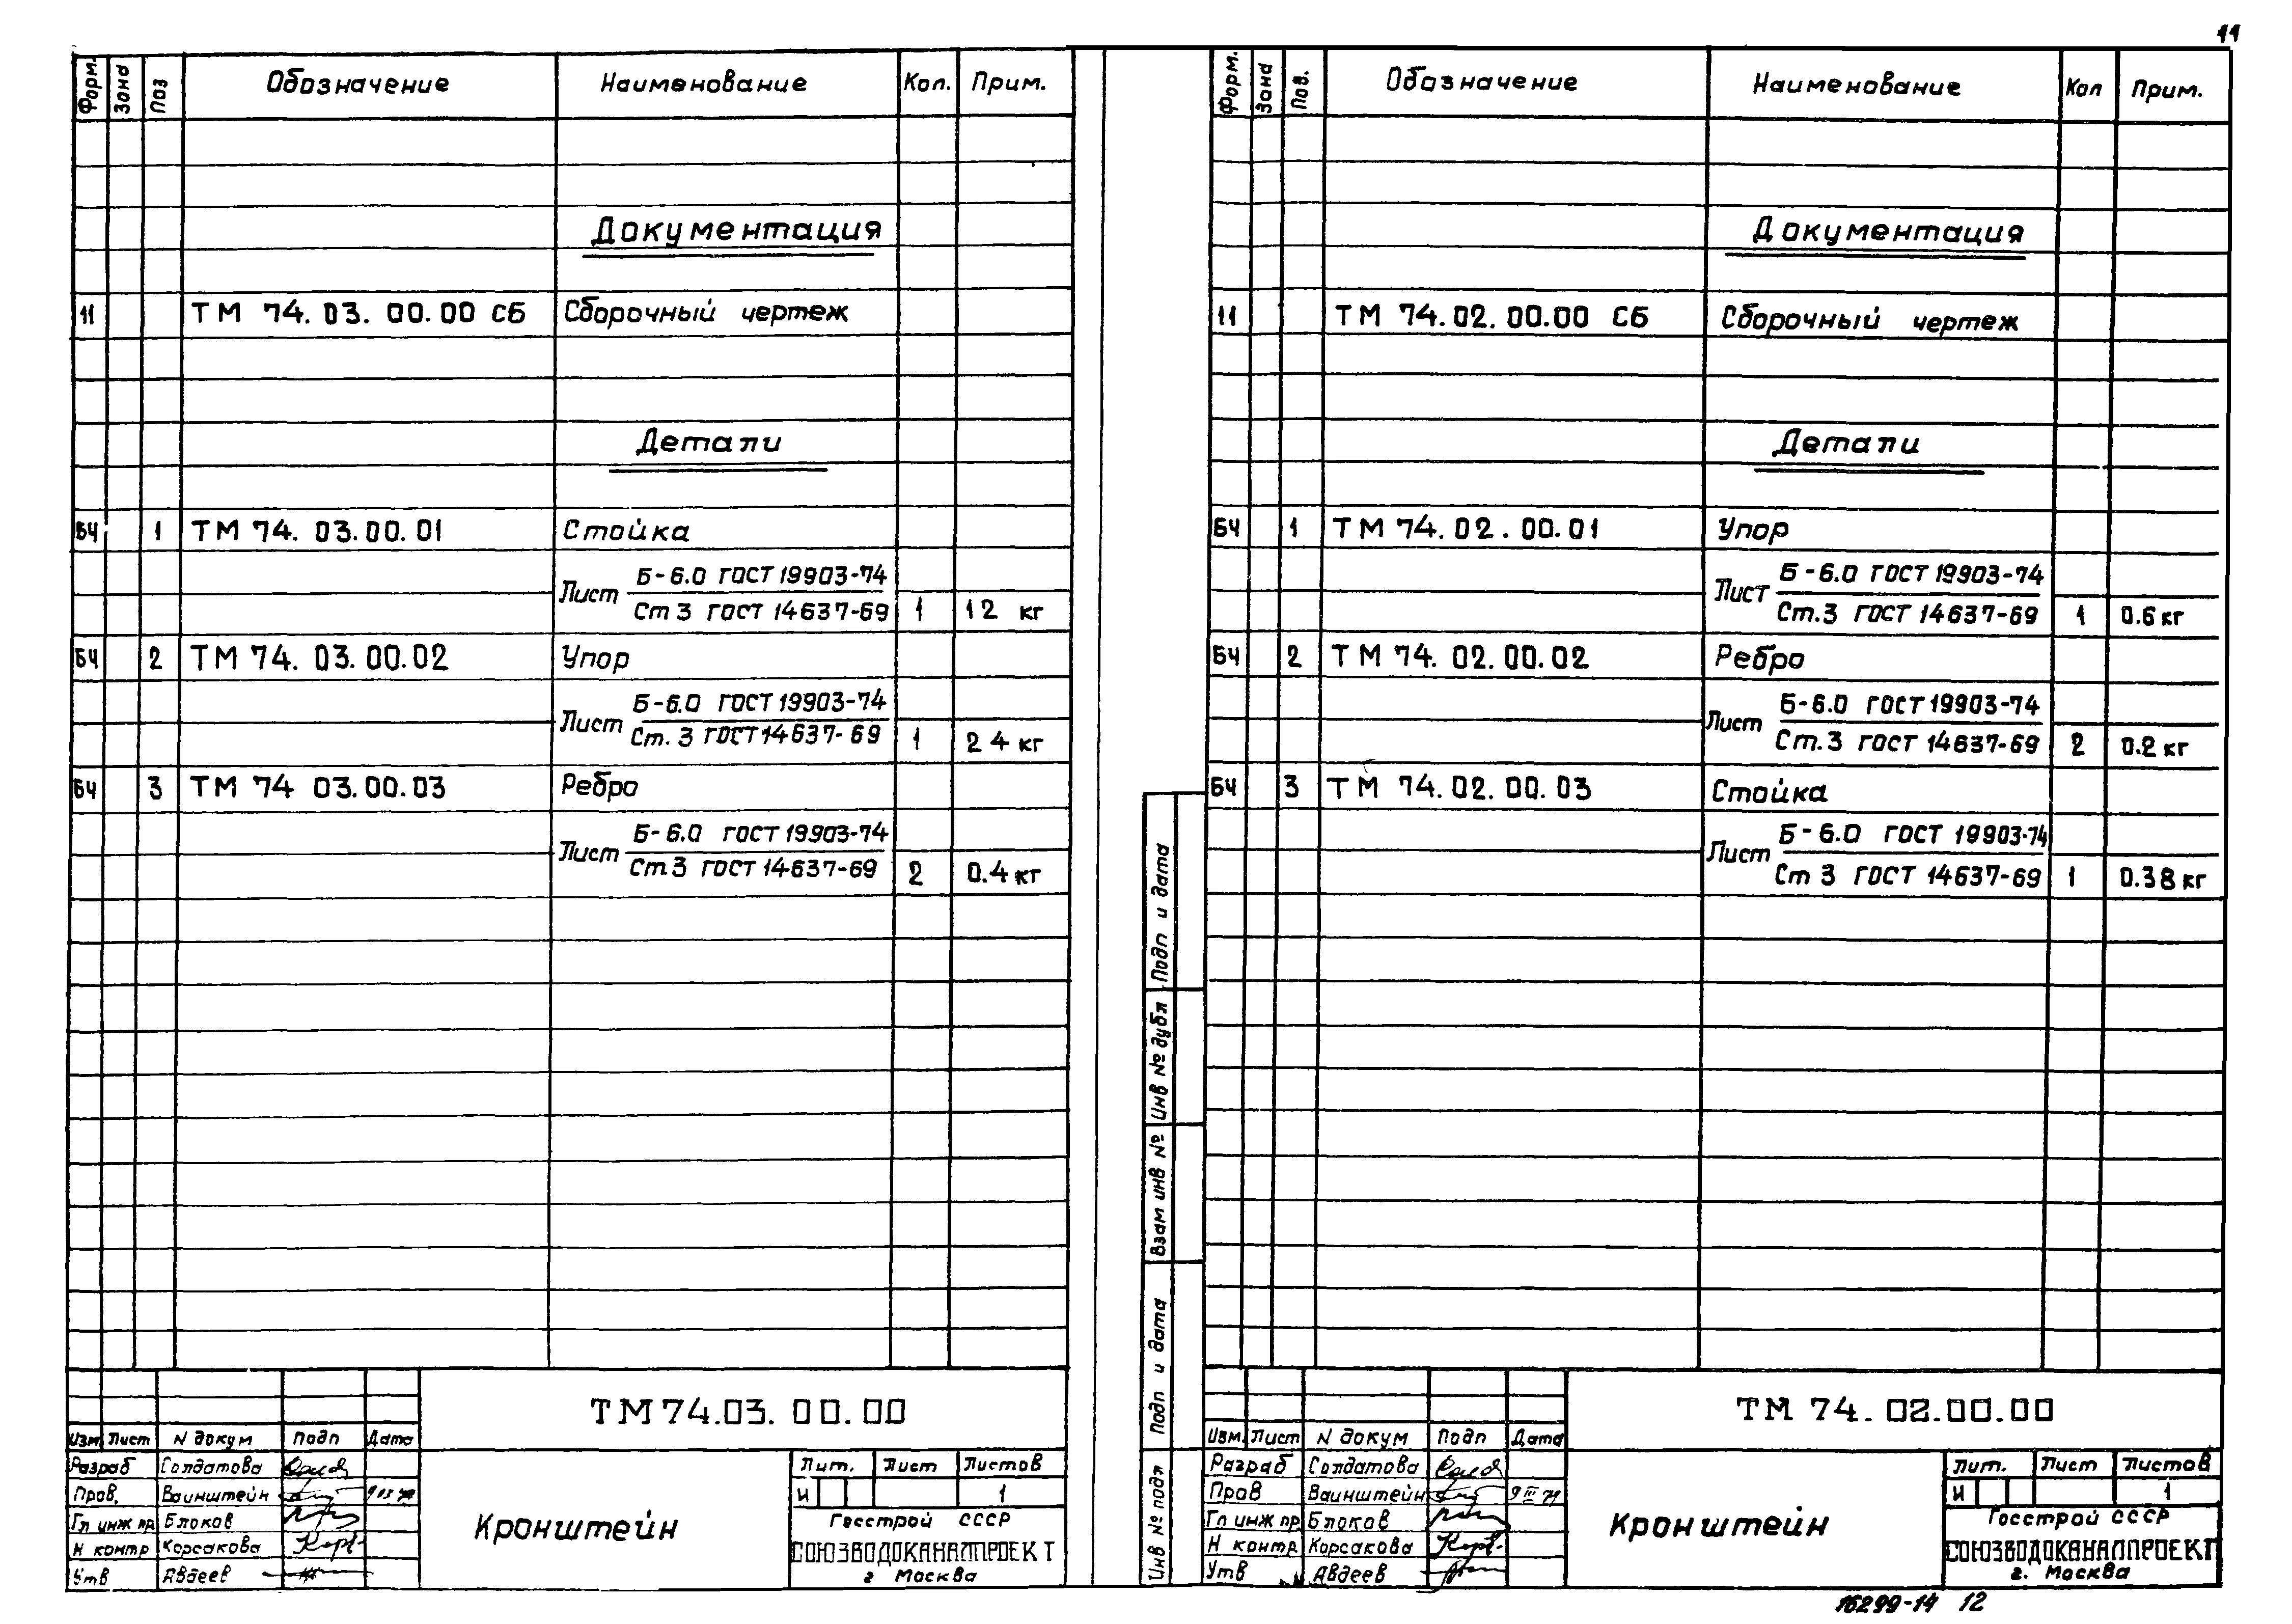 11
Форм. Зона Поз Обозначение Наименование Кол. Прим.
Документация
11 ТМ 74. 03. 00.00 СБ Сборочный чертеж
Детали
БЧ 1 ТМ 74. 03.00.01 Стойка
Лист Б-6.0 ГОСТ 19903-74
Ст 3 ГОСТ 14637-69 1 12 кг
БЧ 2 ТМ 74. 03.00.02 Упор
Лист Б-6.0 ГОСТ 19903-74
Ст. 3 ГОСТ 14637-69 1 2 4 кг
БЧ 3 ТМ 74 03.00.03 Ребро
Лист Б-6.0 ГОСТ 19903-74
Ст 3 ГОСТ 14637-69 2 0.4 кг
ТМ 74.03. 00.00
Изм Лист N докум Подп Дата
Разраб Солдатова
Пров. Ваинштейн
Гл инж пр Блоков
Н контр Корсакова
Утв Авдеев
Кронштейн
Лит. Лист Листов
И 1
Госстрой СССР
СОЮЗВОДОКАНАЛПРОЕКТ
г Москва
Форм. Зона Поз. Обозначение Наименование Кол Прим.
Документация
11 ТМ 74.02.00.00 СБ Сборочный чертеж
Детали
БЧ 1 ТМ 74.02.00.01 Упор
Лист Б-6.0 ГОСТ 19903-74
Ст.3 ГОСТ 14637-69 1 0.6 кг
БЧ 2 ТМ 74. 02.00.02 Ребро
Лист Б-6.0 ГОСТ 19903-74
Ст.3 ГОСТ 14637-69 2 0.2 кг
БЧ 3 ТМ 74.02.00.03 Стойка
Лист Б-6.0 ГОСТ 19903-74
Ст 3 ГОСТ 14637-69 1 0.38 кг
Подп и дата
Инв № дубл
Взам инв №
Подп и дата
Инв № подл
ТМ 74. 02.00.00
Изм. Лист N докум Подп Дата
Разраб Солдатова
Пров Ваинштейн 9 III 79
Гл инж пр Блоков
Н контр Корсакова
Утв Авдеев
Кронштейн
Лит. Лист Листов
И 1
Госстрой СССР
СОЮЗВОДОКАНАЛПРОЕКТ
г. Москва
16299-14 12